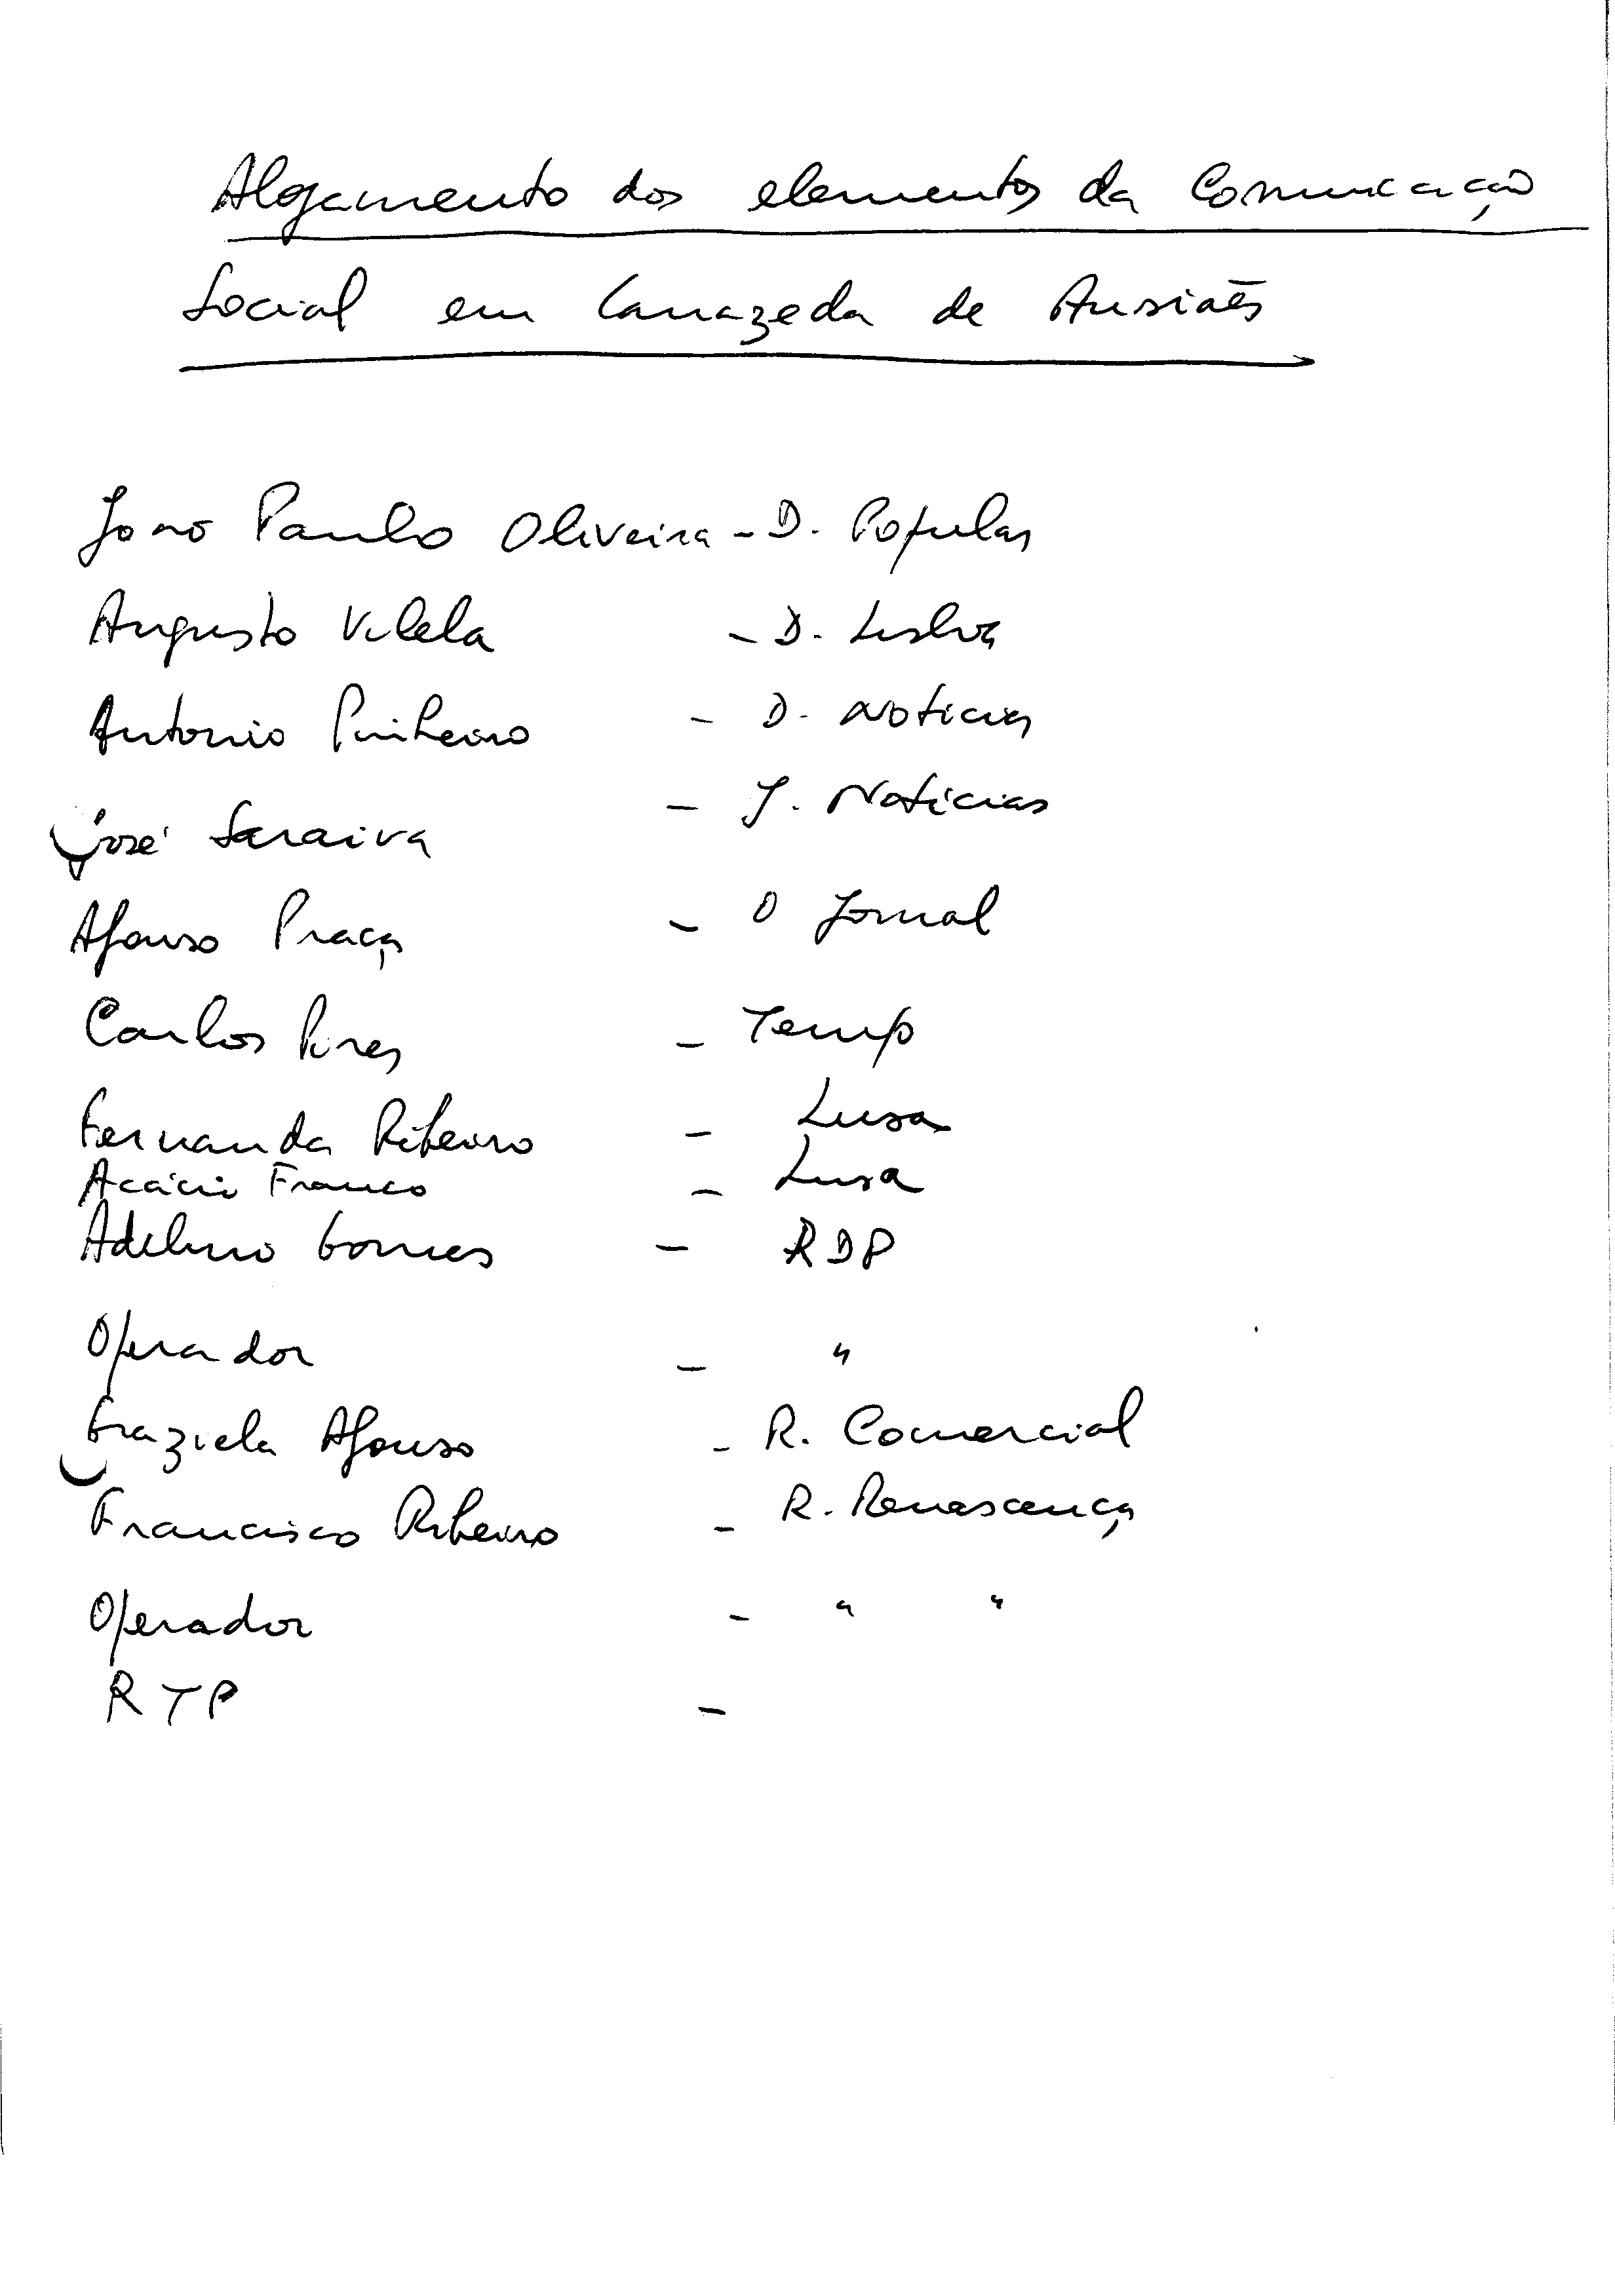 Alojamento dos elementos da Comunicação
Social em Carrazeda de Ansiães
João Paulo Oliveira - D. Popular
Augusto Vilela - D. Lisboa
Antonio Pinheiro - D. Noticias
José Saraiva - J. Notícias
Afonso Praça - O Jornal
Carlos Pires - Tempo
Fernanda Ribeiro - Lusa
Acácio Franco - Lusa
Adelino Gomes - RDP
Operador - "
Graziela Afonso - R. Comercial
Francisco Ribeiro - R. Renascença
Operador - " "
RTP -